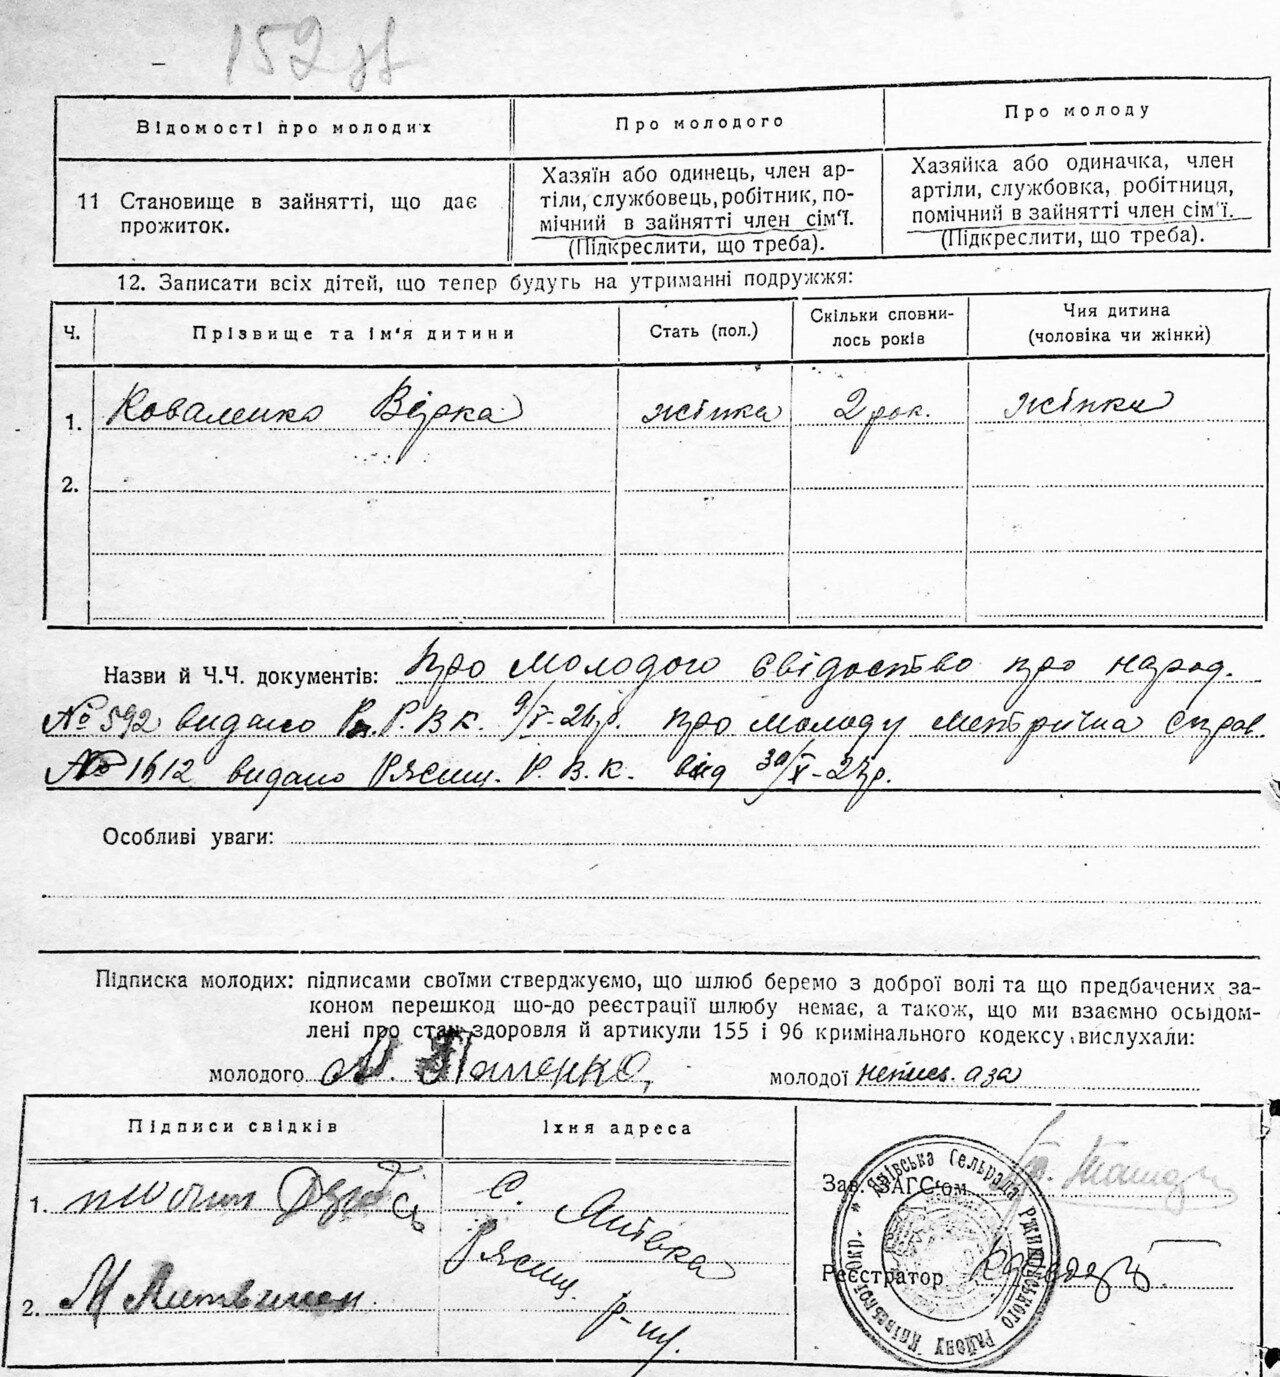 152 зв
Відомості про молодих
Про молодого
Про молоду
11 Становище в зайнятті, що дає прожиток.
Хазяїн або одинець, член ар-
тіли, службовець, робітник, по-
мічний в зайнятті член сім'ї.
(Підкреслити, що треба).
Хазяйка або одиначка, член
артіли, службовка, робітниця,
помічний в зайнятті член сім'ї.
(Підкреслити, що треба).
12. Записати всіх дітей, що тепер будуть на утриманні подружжя:
Ч.
Прізвище та ім'я дитини
Стать (пол.)
Скільки сповни-
лось років
Чия дитина
(чоловіка чи жінки)
1. Коваленко Вірка жінка 2 рок. жінки
2.
Назви й Ч.Ч. документів: про молодого свідоство про народ.
№ 592 видано Р.В.К. 9/X-26р. про молоду метрична справ.
№ 1612 видано Рясищ. Р.В.К. від 30/X-27р.
Особливі уваги:
Підписка молодих: підписами своїми стверджуємо, що шлюб беремо з доброї волі та що предбачених за-
коном перешкод що-до реєстрації шлюбу немає, а також, що ми взаємно осьідом-
лені про стан здоровля й артикули 155 і 96 кримінального кодексу вислухали:
молодого
молодої
Підписи свідків
Їхня адреса
1.
с. Янівка
2. М Литвинен
р-ну.
Зав. ЗАГС'ом
Реєстратор
Янівська Сельрада Ржищівського району Київської Окр.